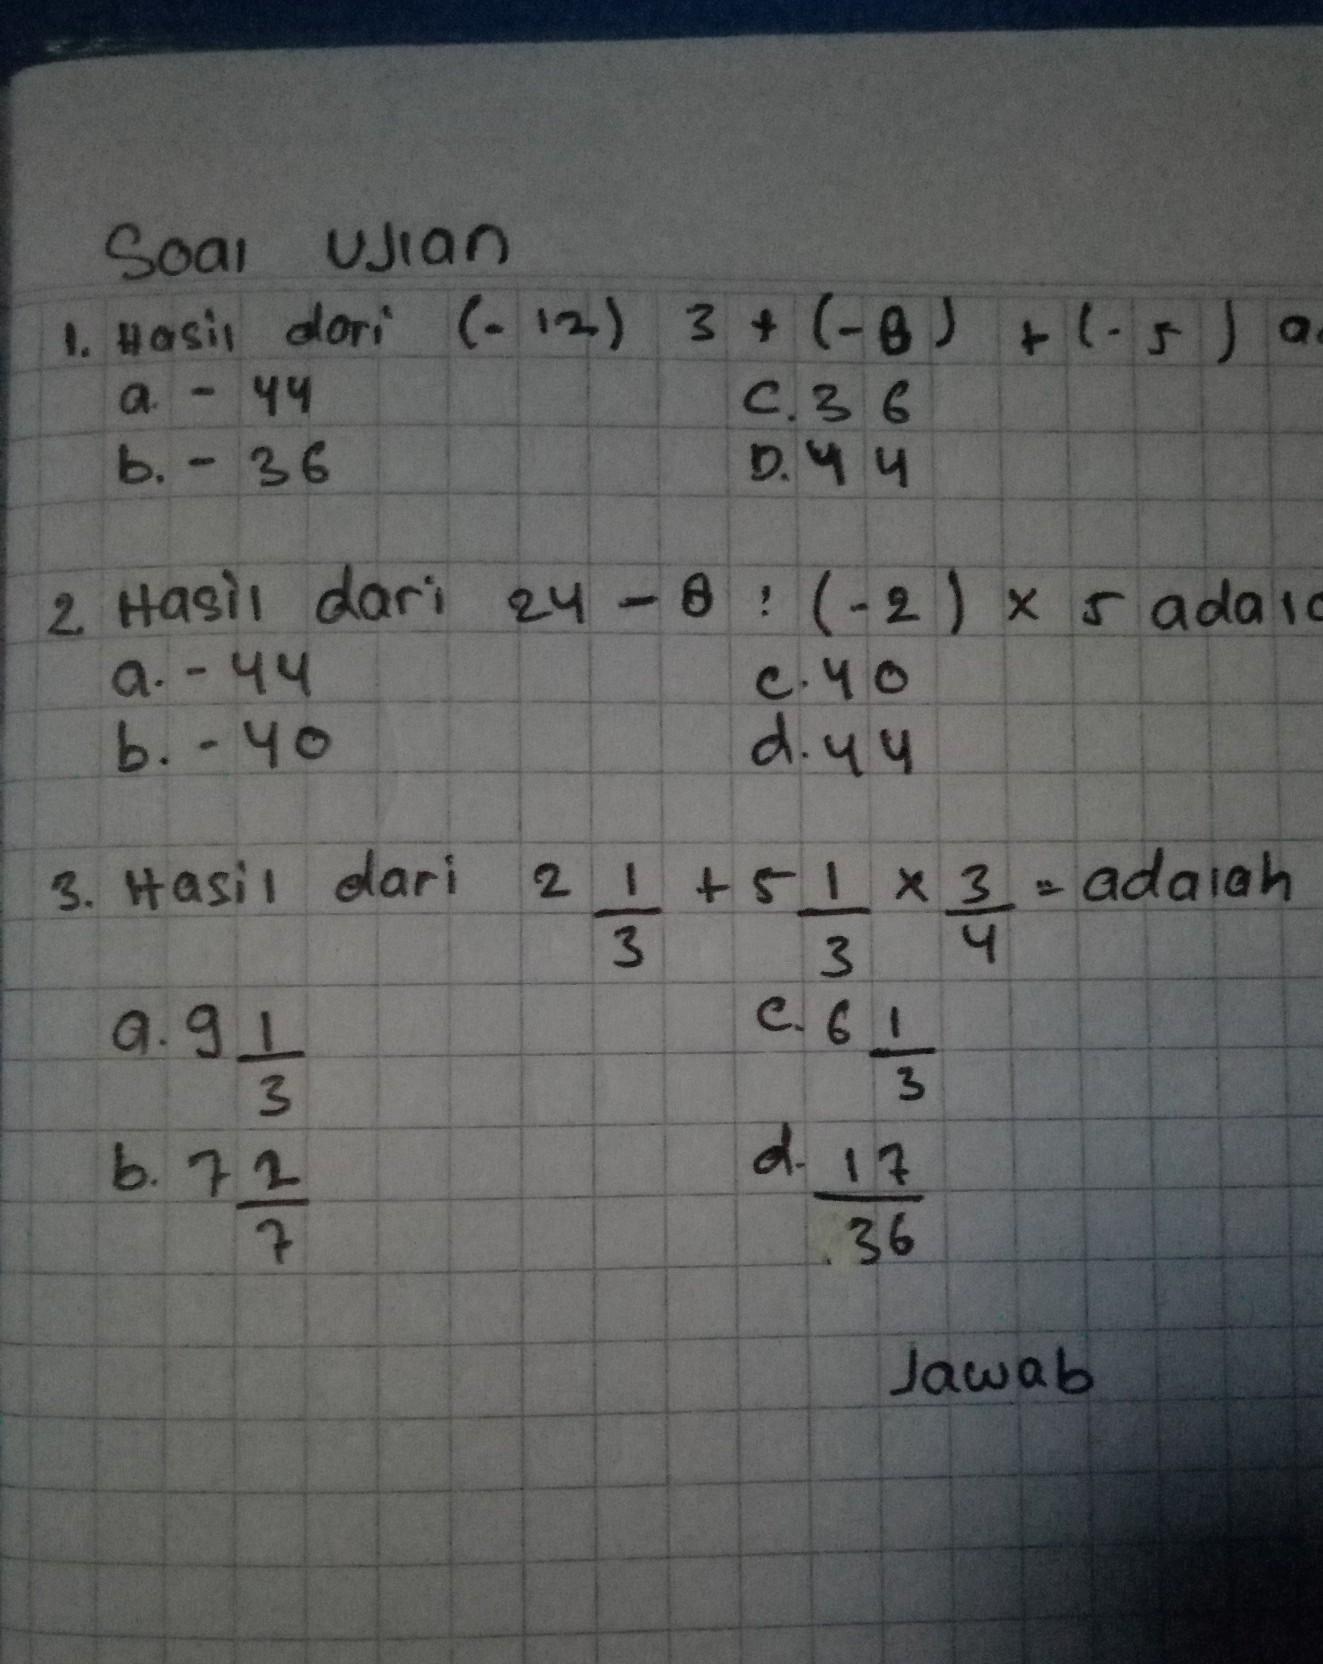 Soal Ujian
1. Hasil dari (-12) 3 + (-8) + (-5) a
a. - 44 C. 36
b. - 36 D. 44
2. Hasil dari 24 - 8 : (-2) x 5 adala
a. - 44 c. 40
b. - 40 d. 44
3. Hasil dari 2 1/3 + 5 1/3 x 3/4 = adalah
a. 9 1/3 c. 6 1/3
b. 7 2/7 d. 17/36
Jawab